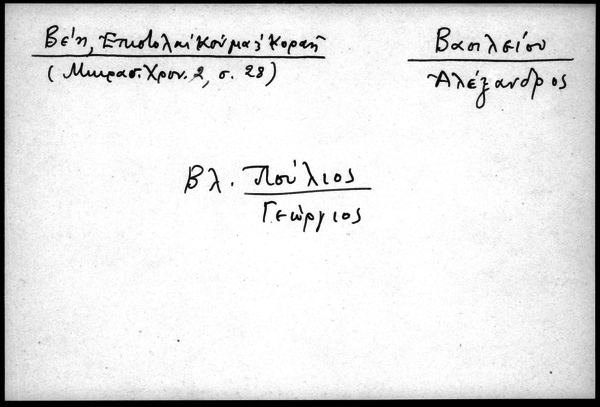 Βέη, Ἐπιστολαὶ Κούμα & Κοραῆ
(Μικρασ. Χρον. 2, σ. 28)
Βασιλείου
Ἀλέξανδρος
Βλ. Πούλιος
Γεώργιος